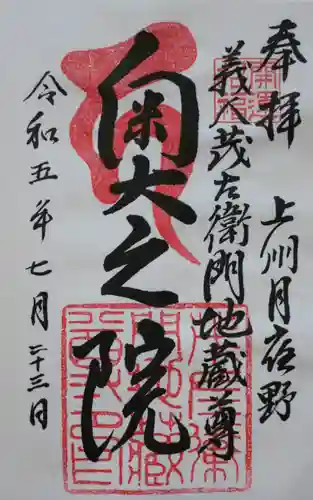 奉拝
上州月夜野
義人茂左衛門地蔵尊
奥之院
令和五年七月二十三日